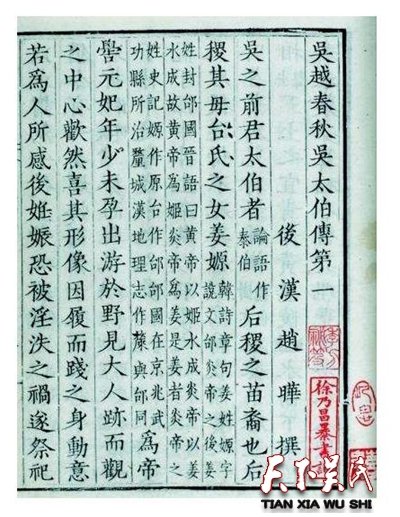 吳越春秋吳太伯傳第一
後漢趙曄撰
吳之前君太伯者論語作泰伯后稷之苗裔也后
稷其母台氏之女姜嫄韓詩章句姜姓嫄字說文邰炎帝之後姜
姓封邰國晉語曰黄帝以姬水成炎帝以姜
水成故黄帝爲姬炎帝爲姜是姜者炎帝之
姓史記嫄作原台作邰邰國在京兆武
功縣所治釐城漢地理志作斄與邰同爲帝
嚳元妃年少未孕出游於野見大人跡而觀
之中心歡然喜其形像因履而踐之身動意
若爲人所感後姙娠恐被淫泆之禍遂祭祀
徐乃昌暴書記
天下吴氏
TIAN XIA WU SHI